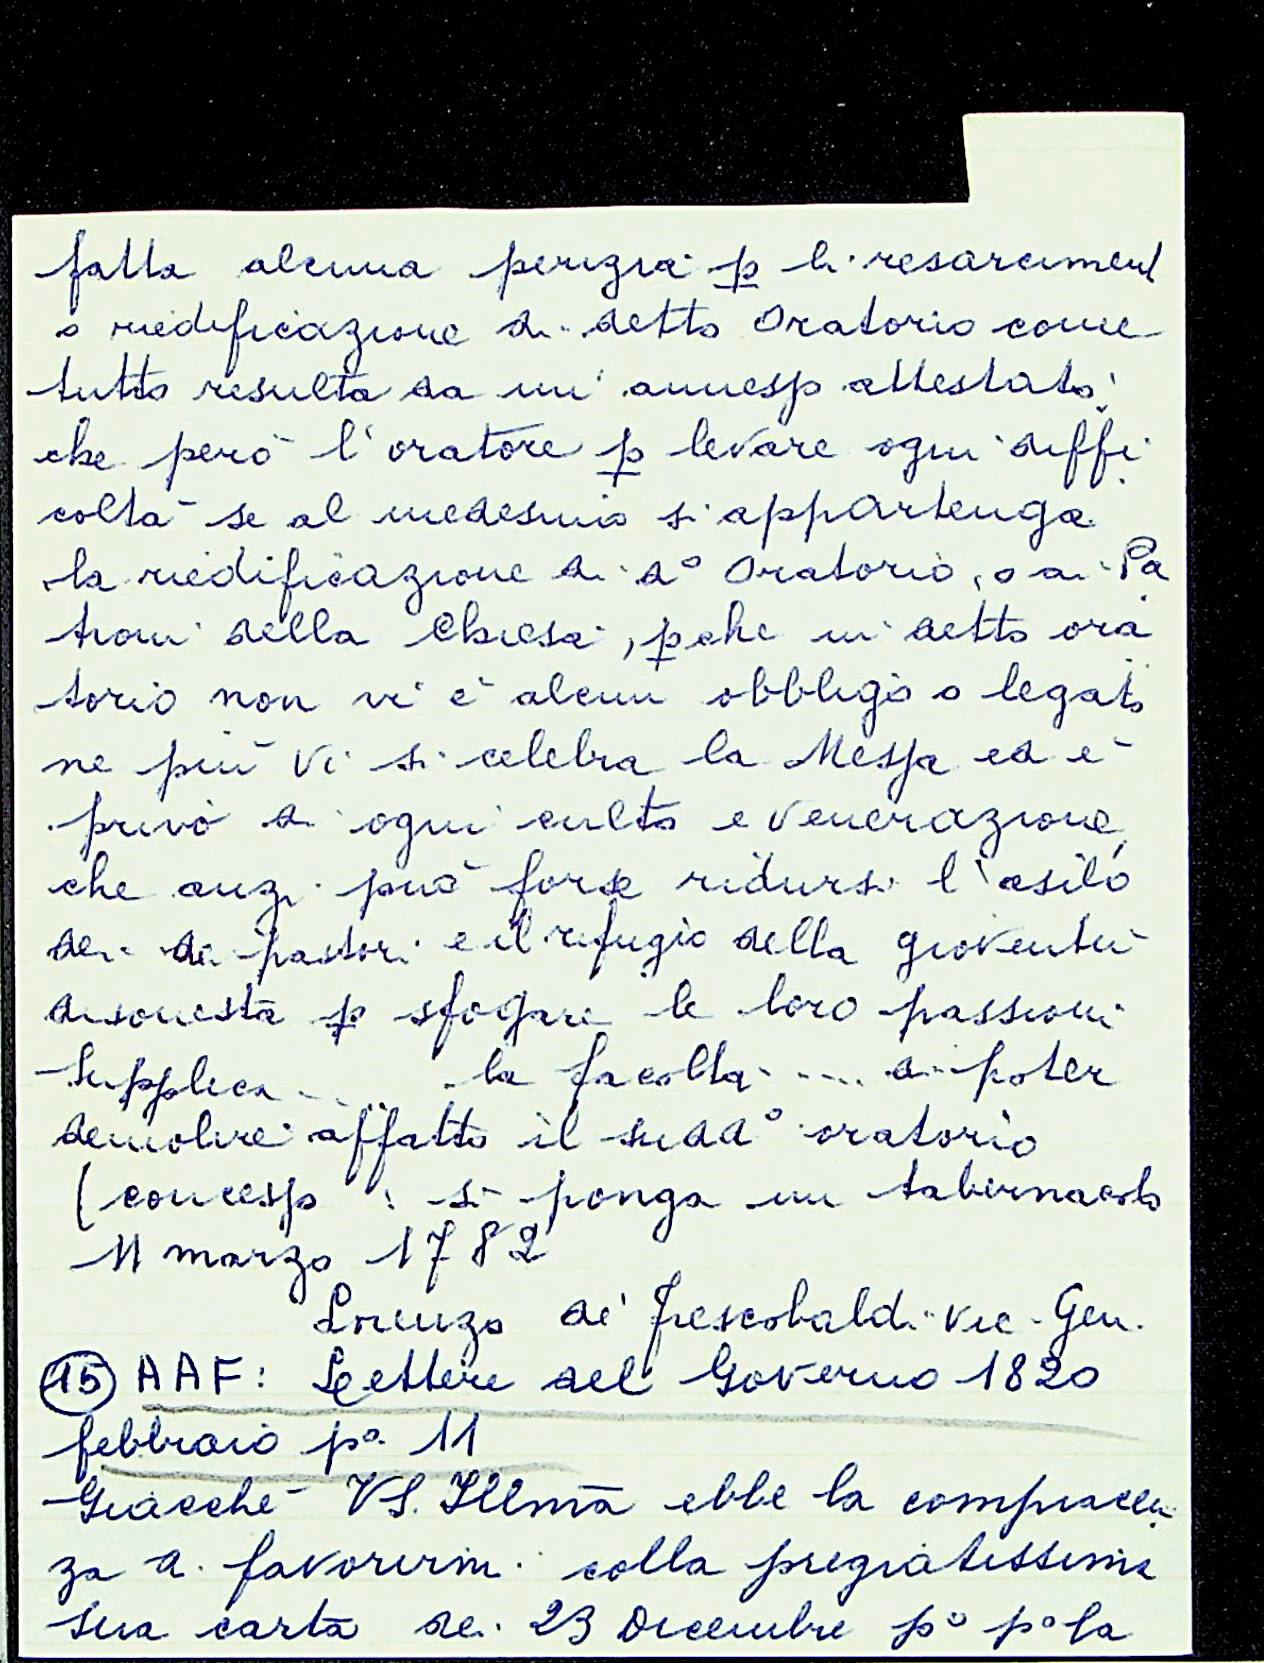 fatta alcuna perizia p li resarciment
o riedificazione di detto Oratorio come
tutto resulta da un' annesso attestato,
che però l'oratore p levare ogni diffi
coltà se al medesimo si appartenga
la riedificazione di do Oratorio, o ai Pa
troni della Chiesa, pche in detto ora
torio non vi è alcun obbligo o legato
ne più vi si celebra la Messa ed è
privo di ogni culto e venerazione,
che anzi può forse ridursi l'asilo
dei pastori e il refugio della gioventù
disonesta p sfogare le loro passioni
Supplica .... la facoltà .... di poter
demolire affatto il sudd° oratorio
(concesso : si ponga un tabernacolo
11 marzo 1782
Lorenzo de' Frescobaldi Vic. Gen.
15 AAF: Lettere del Governo 1820
febbraio p° 11
Giacché VS. Illma ebbe la compiacen
za di favorirmi colla pregiatissima
sua carta de 23 Dicembre p° p° la